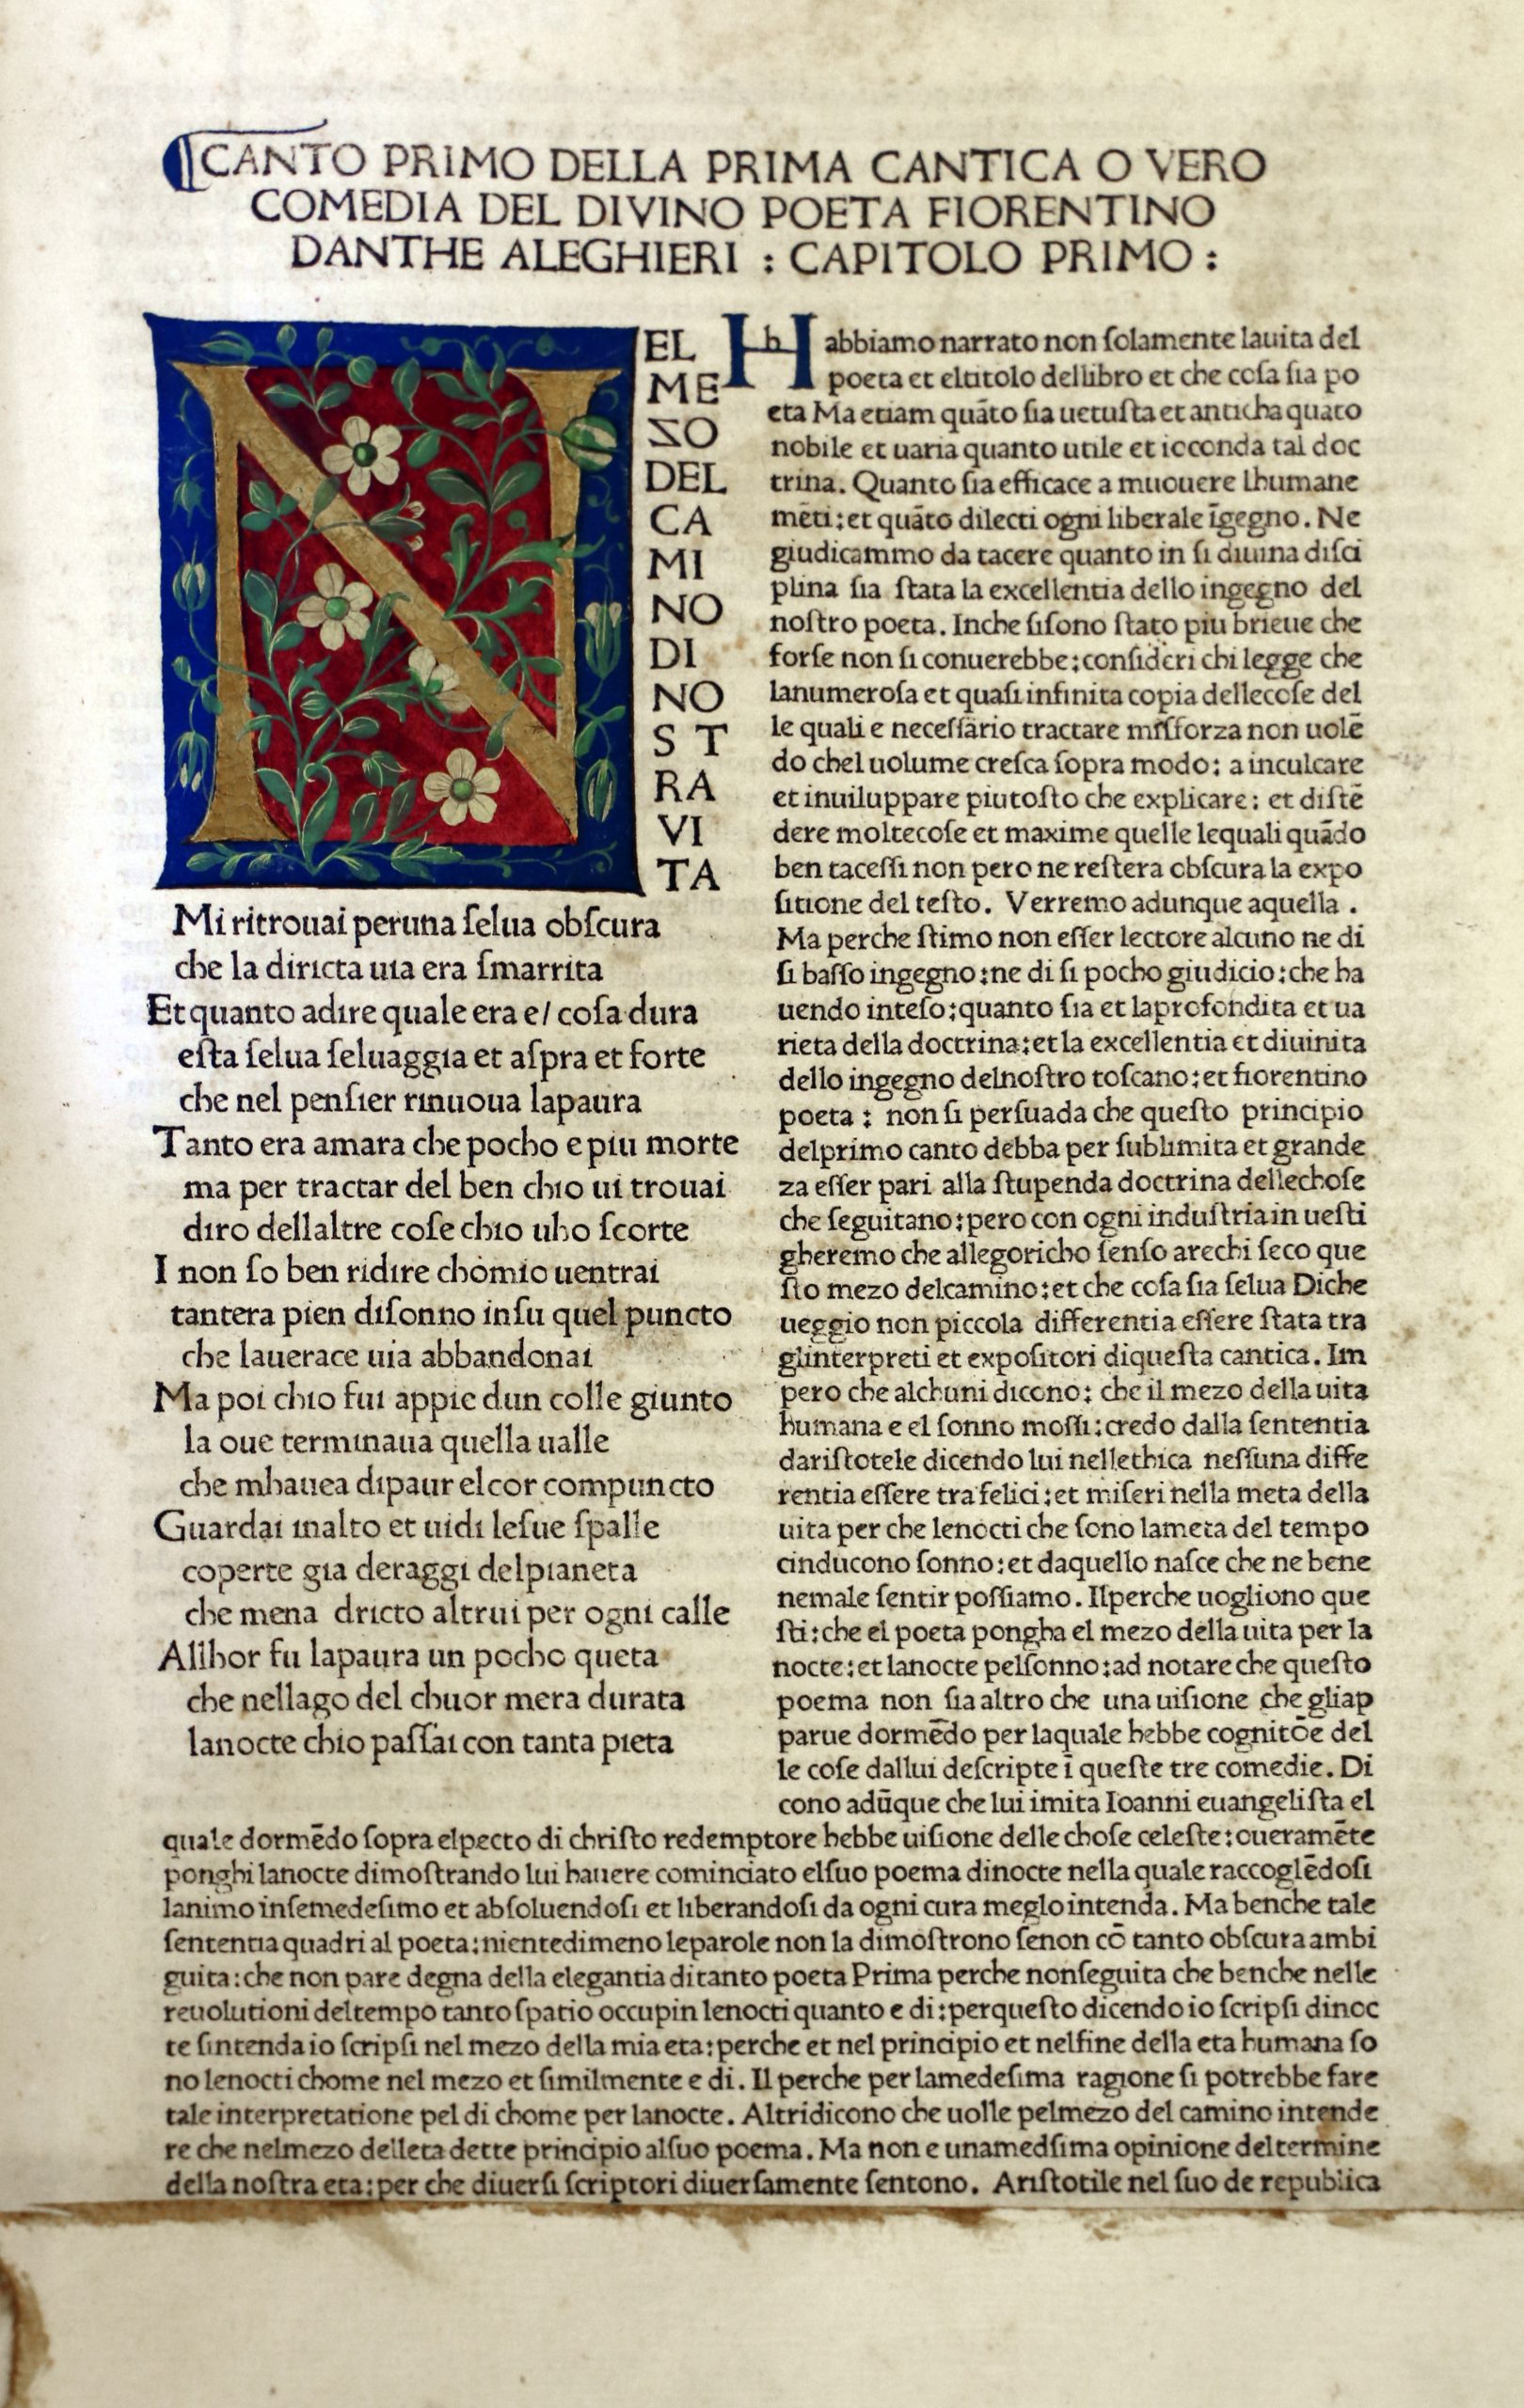 CANTO PRIMO DELLA PRIMA CANTICA O VERO
COMEDIA DEL DIVINO POETA FIORENTINO
DANTHE ALEGHIERI : CAPITOLO PRIMO :
N EL
ME
ZO
DEL
CA
MI
NO
DI
NO
S T
RA
VI
TA
Mi ritrouai peruna ſelua obſcura
che la diricta uia era ſmarrita
Et quanto adire quale era e/ coſa dura
eſta ſelua ſeluaggia et aſpra et forte
che nel penſier rinuoua lapaura
Tanto era amara che pocho e piu morte
ma per tractar del ben chio ui trouai
diro dellaltre coſe chio uho ſcorte
I non ſo ben ridire chomio uentrai
tantera pien diſonno inſu quel puncto
che lauerace uia abbandonai
Ma poi chio fui appie dun colle giunto
la oue terminaua quella ualle
che mhauea dipaur elcor compuncto
Guardai inalto et uidi leſue ſpalle
coperte gia deraggi delpianeta
che mena dricto altrui per ogni calle
Allhor fu lapaura un pocho queta
che nellago del chuor mera durata
lanocte chio paſſai con tanta pieta
H abbiamo narrato non ſolamente lauita del
poeta et eltitolo dellibro et che coſa ſia po
eta Ma etiam quāto ſia uetuſta et anticha quato
nobile et uaria quanto utile et ioconda tal doc
trina. Quanto ſia efficace a muouere lhumane
mēti:et quāto dilecti ogni liberale īgegno. Ne
giudicammo da tacere quanto in ſi diuina diſci
plina ſia ſtata la excellentia dello ingegno del
noſtro poeta. Inche ſiſono ſtato piu brieue che
forſe non ſi conuerebbe:conſideri chi legge che
lanumeroſa et quaſi infinita copia dellecoſe del
le quali e neceſſario tractare misforza non uolē
do chel uolume creſca ſopra modo: a inculcare
et inuiluppare piutoſto che explicare: et diſtē
dere moltecoſe et maxime quelle lequali quādo
ben taceſſi non pero ne reſtera obſcura la expo
ſitione del teſto. Verremo adunque aquella .
Ma perche ſtimo non eſſer lectore alcuno ne di
ſi baſſo ingegno:ne di ſi pocho giudicio:che ha
uendo inteſo:quanto ſia et laprofondita et ua
rieta della doctrina:et la excellentia et diuinita
dello ingegno delnoſtro toſcano:et fiorentino
poeta : non ſi perſuada che queſto principio
delprimo canto debba per ſublimita et grande
za eſſer pari alla ſtupenda doctrina dellechoſe
che ſeguitano:pero con ogni induſtria in ueſti
gheremo che allegoricho ſenſo arechi ſeco que
ſto mezo delcamino:et che coſa ſia ſelua Diche
ueggio non piccola differentia eſſere ſtata tra
glinterpreti et expoſitori diqueſta cantica. Im
pero che alchuni dicono: che il mezo della uita
humana e el ſonno moſſi:credo dalla ſententia
dariſtotele dicendo lui nellethica neſſuna diffe
rentia eſſere tra felici:et miſeri nella meta della
uita per che lenocti che ſono lameta del tempo
cinducono ſonno:et daquello naſce che ne bene
nemale ſentir poſſiamo. Ilperche uogliono que
ſti:che el poeta pongha el mezo della uita per la
nocte:et lanocte pelſonno:ad notare che queſto
poema non ſia altro che una uiſione che gliap
parue dormēdo per laquale hebbe cognitōe del
le coſe dallui deſcripte ī queſte tre comedie. Di
cono adūque che lui imita Ioanni euangeliſta el
quale dormēdo ſopra elpecto di chriſto redemptore hebbe uiſione delle choſe celeſte:oueramēte
ponghi lanocte dimoſtrando lui hauere cominciato elſuo poema dinocte nella quale raccoglēdoſi
lanimo inſemedeſimo et abſoluendoſi et liberandoſi da ogni cura meglo intenda. Ma benche tale
ſententia quadri al poeta:nientedimeno leparole non la dimoſtrono ſenon cō tanto obſcura ambi
guita:che non pare degna della elegantia ditanto poeta Prima perche nonſeguita che benche nelle
reuolutioni deltempo tanto ſpatio occupin lenocti quanto e di:perqueſto dicendo io ſcripſi dinoc
te ſintenda io ſcripſi nel mezo della mia eta:perche et nel principio et nelfine della eta humana ſo
no lenocti chome nel mezo et ſimilmente e di. Il perche per lamedeſima ragione ſi potrebbe fare
tale interpretatione pel di chome per lanocte. Altridicono che uolle pelmezo del camino intende
re che nelmezo delleta dette principio alſuo poema. Ma non e unamedſima opinione deltermine
della noſtra eta:per che diuerſi ſcriptori diuerſamente ſentono. Ariſtotile nel ſuo de republica